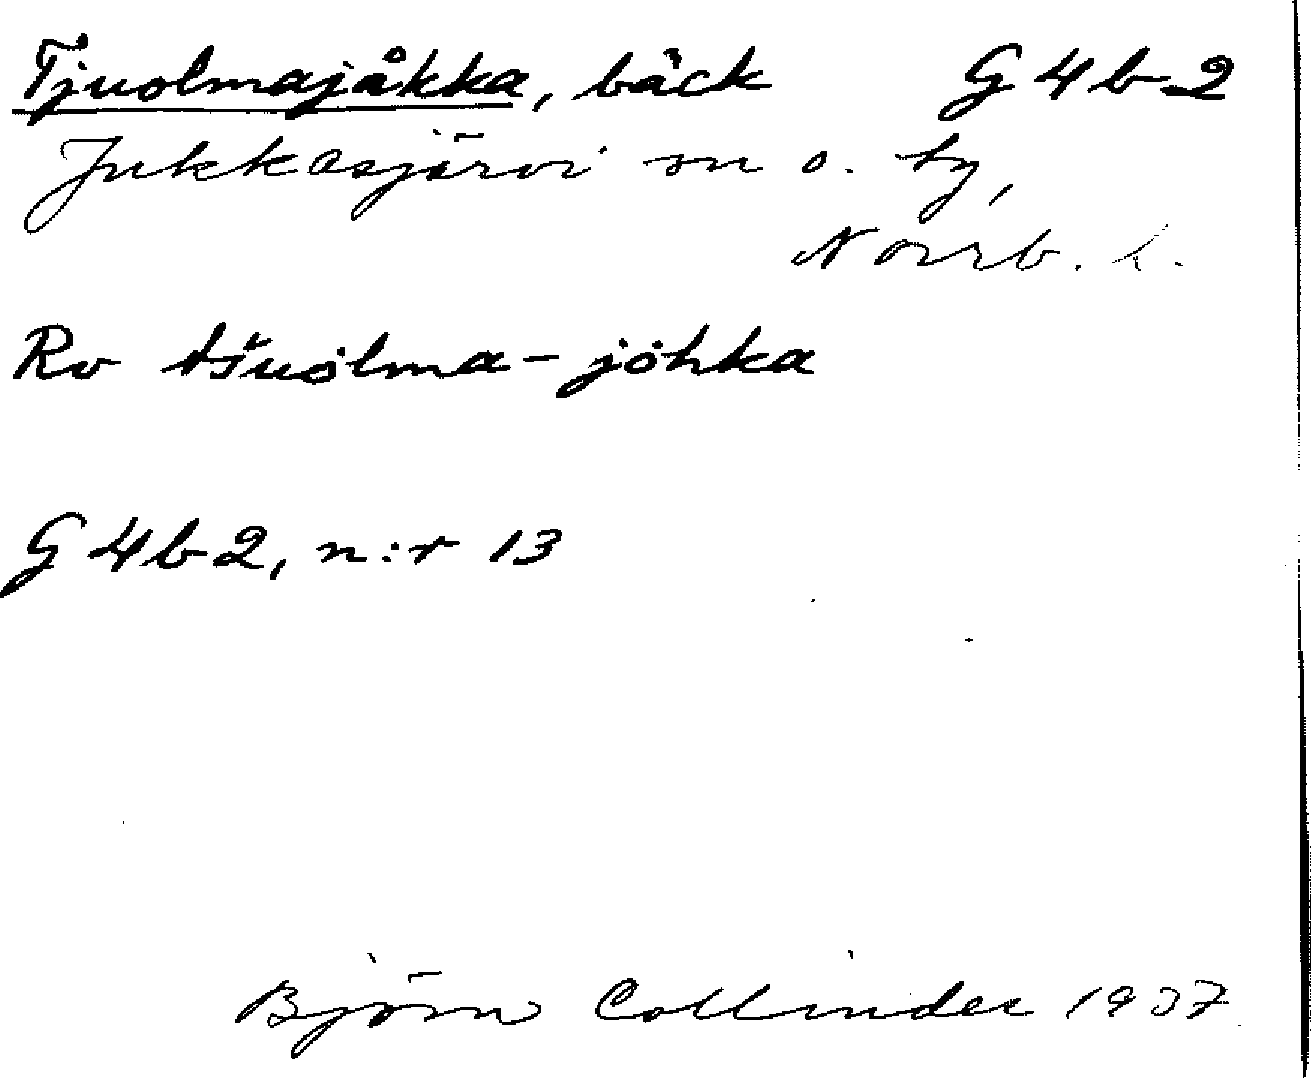 Tjuolmajåkka, bäck G4b2
Jukkasjärvi sn o. tg,
Norrb. l.
Rv tšuolma-johka
G4b2, n:r 13
Björn Collinder 1937